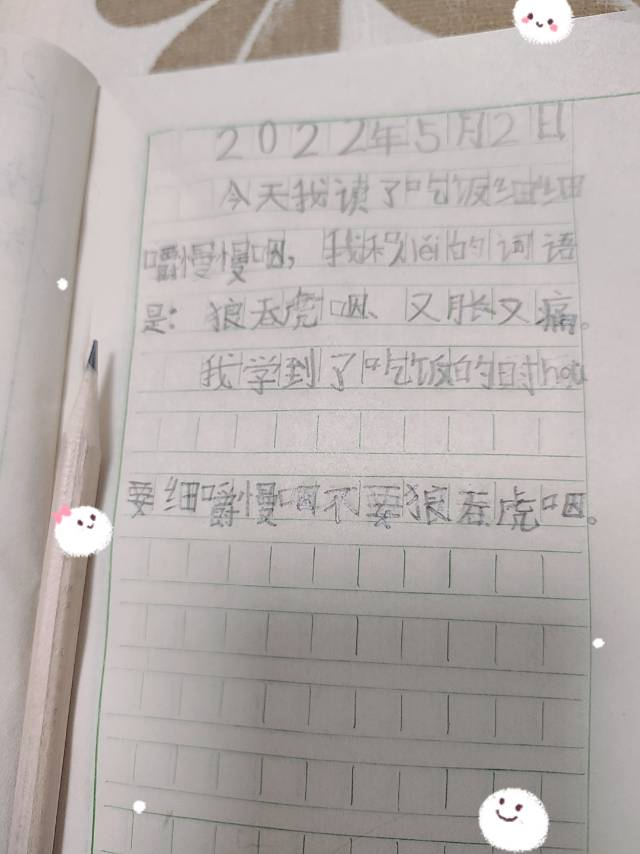 2022年5月2日
今天我读了吃饭细细
嚼慢慢咽，我积lěi的词语
是：狼吞虎咽、又胀又痛。
我学到了吃饭的时hou
要细嚼慢咽不要狼吞虎咽。